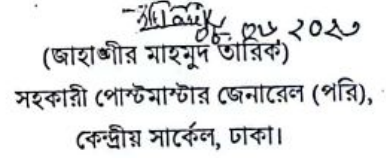 ০৮.০৬.২০২৩
(জাহাঙ্গীর মাহমুদ তারিক)
সহকারী পোস্টমাস্টার জেনারেল (পরি),
কেন্দ্রীয় সার্কেল, ঢাকা।